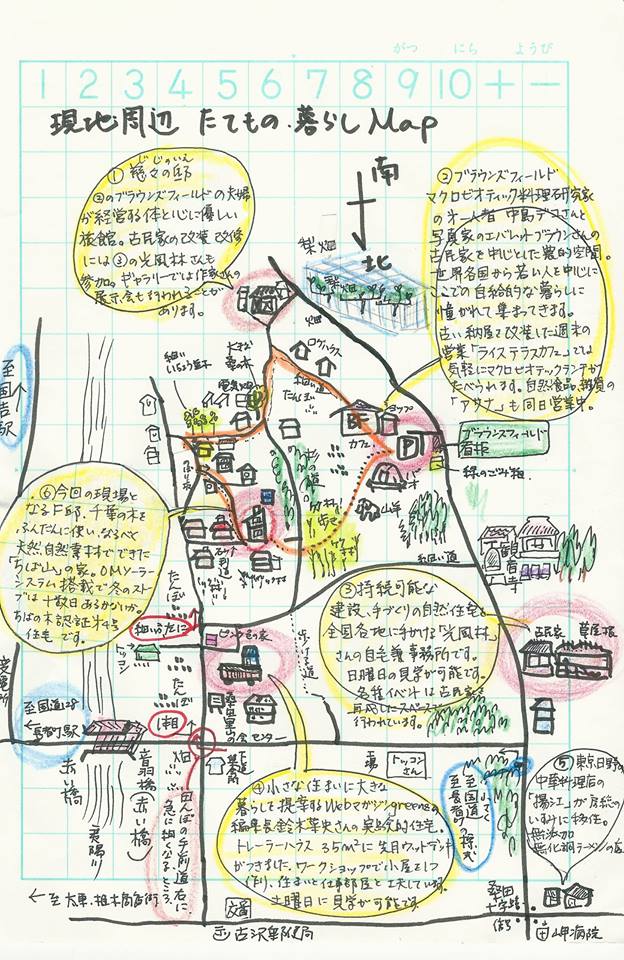 がつ にち ようび
1 2 3 4 5 6 7 8 9 10 + −
現地周辺 たてもの・暮らし Map
南
北
① 慈々の邸
じじのいえ
②のブラウンズフィールドの夫婦
が経営する体と心に優しい
旅館。古民家の改装改修
には③の光風林さんも
参加。ギャラリーでは作家さんの
展示会も行われることが
あります。
② ブラウンズフィールド
マクロビオティック料理研究家
の第一人者 中島デコさんと
写真家のエバレットブラウンさんの
古民家を中心とした 空間。
世界各国から若い人を中心に
ここでの自給的な暮らしに
憧れて集まってきます。
古い納屋を改装した週末の
営業「ライステラスカフェ」では
気軽にマクロビオティックランチが
たべられます。自然食品、雑貨の
「アサナ」も同日営業中。
梨畑
梨畑
畑
ログハウス
大きな
細い
いちょう並木
電気
細い道
たんぼ
カフェ
ショップ
P
ブラウンズフィールド
看板
緑のごみ箱
竹林
細い道
砂利道
至国吉駅
⑥ 今回の現場と
なるF邸。千葉の木を
ふんだんに使い、なるべく
天然自然素材でできた
「ちば山」の家。OMソーラー
システム搭載で冬のストー
ブは十数日あるかないか。
ちばの木認証木4号
住宅です。
③ 持続可能な
建設、手づくりの自然住宅を
全国各地に手がける「光風林」
さんの自宅兼事務所です。
日曜日の見学が可能です。
各種イベントは古民家を
スペースで
行われています。
観音寺
古民家 草屋根
変電所
たんぼ
狙いふたに
トッコン
たんぼ
1箱
ピンクの家
歩ける道
センター
至国道128
← 長者町駅
赤い橋
音羽橋(赤い橋)
君陽川
畑
田んぼの手前道右に
急に細くなるところ。
集会所
工場
トッコン
さん
至国道
至長者町の標識
小さく
④ 小さな住まいに大きな
暮らしを提案するWebマガジンgreenz
編集長鈴木菜央さんの実験的住宅。
トレーラーハウス35㎡に先月ウッドデッキ
がつきました。ワークショップで小屋を1つ
作り、住まいと仕事部屋と工夫しています。
土曜日に見学が可能です。
⑤ 東京日野の
中華料理店の
「揚江」が房総の
いすみに移住。
無添加
無化調ラーメンの店
← 至大原、椎木商店街
交番
〒古沢郵便局
十字路
信号
岬病院